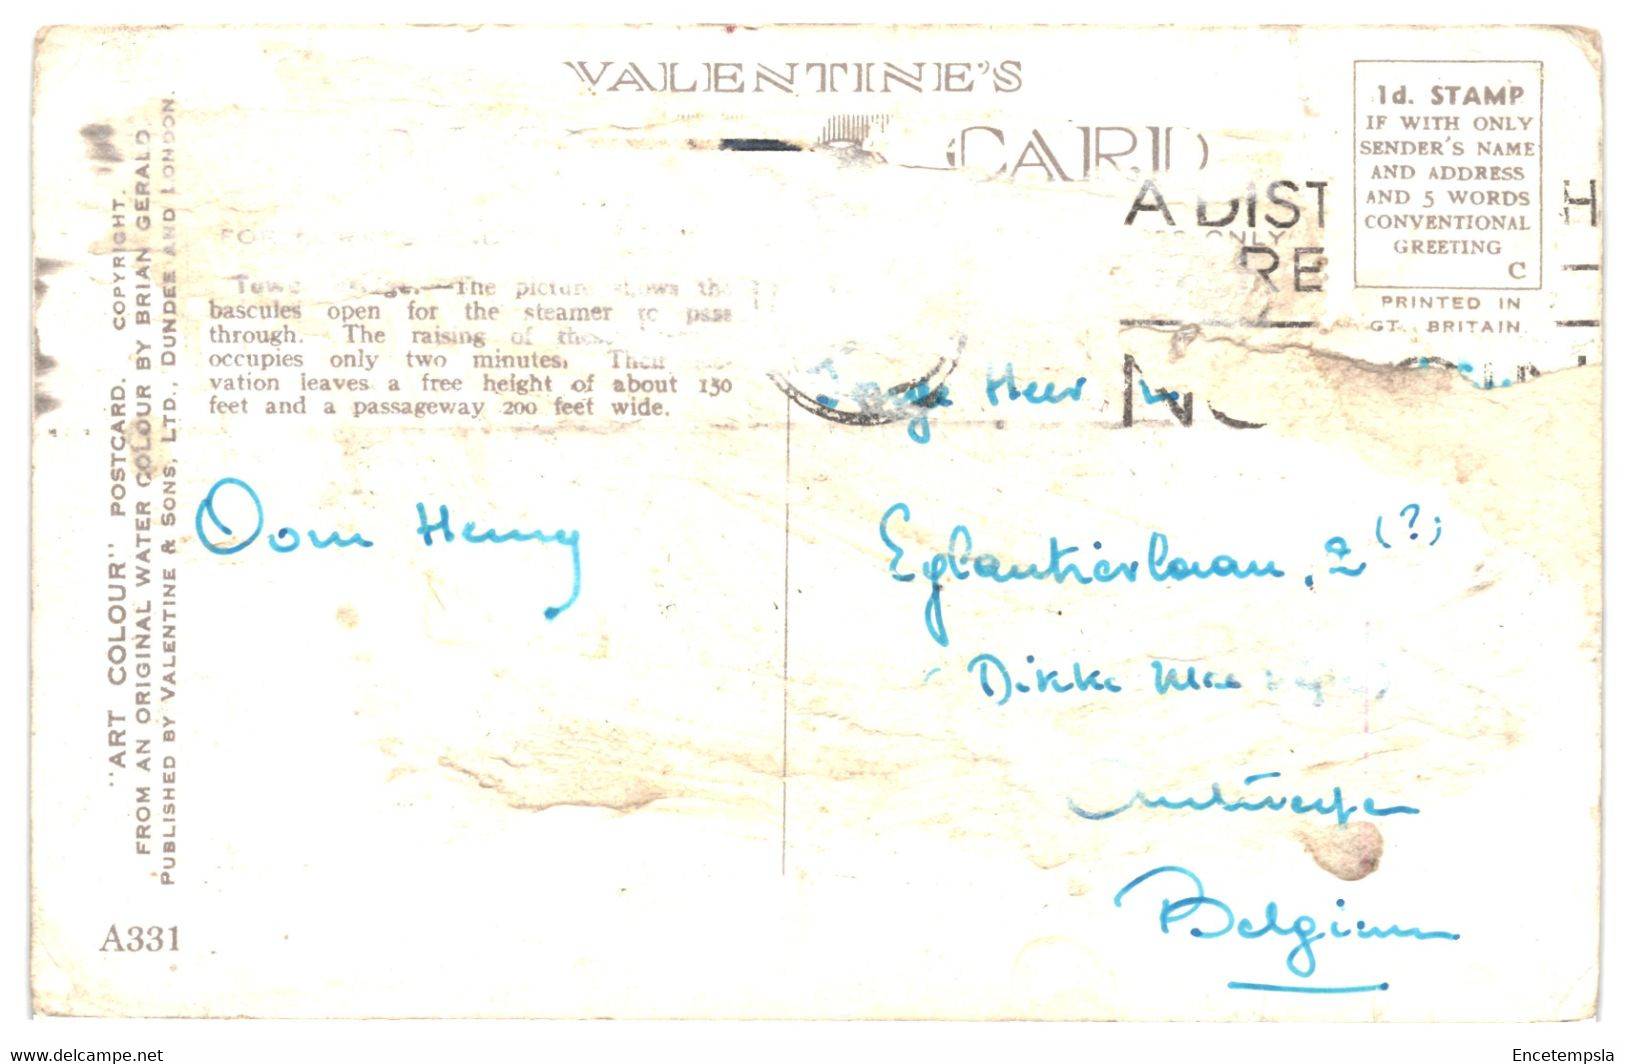 VALENTINE'S
CARD
1d. STAMP
IF WITH ONLY
SENDER'S NAME
AND ADDRESS
AND 5 WORDS
CONVENTIONAL
GREETING
C
PRINTED IN
GT. BRITAIN.
A DIST
H
RE
"ART COLOUR" POSTCARD. COPYRIGHT.
FROM AN ORIGINAL WATER COLOUR BY BRIAN GERALD
PUBLISHED BY VALENTINE & SONS, LTD., DUNDEE AND LONDON.
The picture shows the
bascules open for the steamer to pass
through. The raising of
occupies only two minutes. Their
vation leaves a free height of about 130
feet and a passageway 200 feet wide.
Heer
Oom Henry
Eglantierlaan, 2 (?)
Dikke
Antwerpen
Belgium
A331
www.delcampe.net
Encetempsla